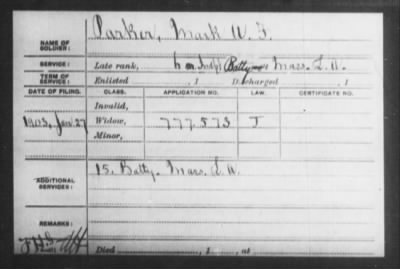 NAME OF SOLDIER: Parker, Mark W. F.
SERVICE: Late rank, Batty Mass. L. A.
TERM OF SERVICE: Enlisted , 1 Discharged , 1
DATE OF FILING. CLASS. APPLICATION NO. LAW. CERTIFICATE NO.
Invalid,
1903, Jan. 27 Widow, 777.573 J
Minor,
ADDITIONAL SERVICES: 15. Batty. Mass. L. A.
REMARKS:
Died , 1 , at